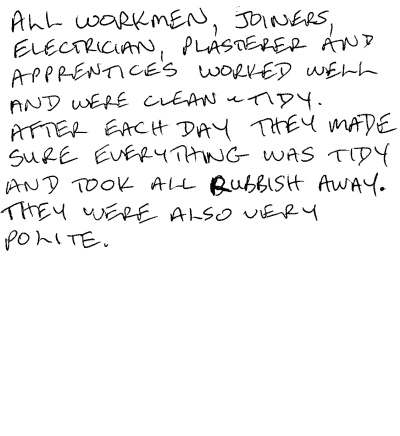 ALL WORKMEN, JOINERS,
ELECTRICIAN, PLASTERER AND
APPRENTICES WORKED WELL
AND WERE CLEAN & TIDY.
AFTER EACH DAY THEY MADE
SURE EVERYTHING WAS TIDY
AND TOOK ALL RUBBISH AWAY.
THEY WERE ALSO VERY
POLITE.